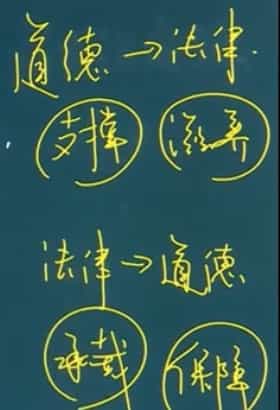 道德→法律
支撑 滋养
法律→道德
承载 保障